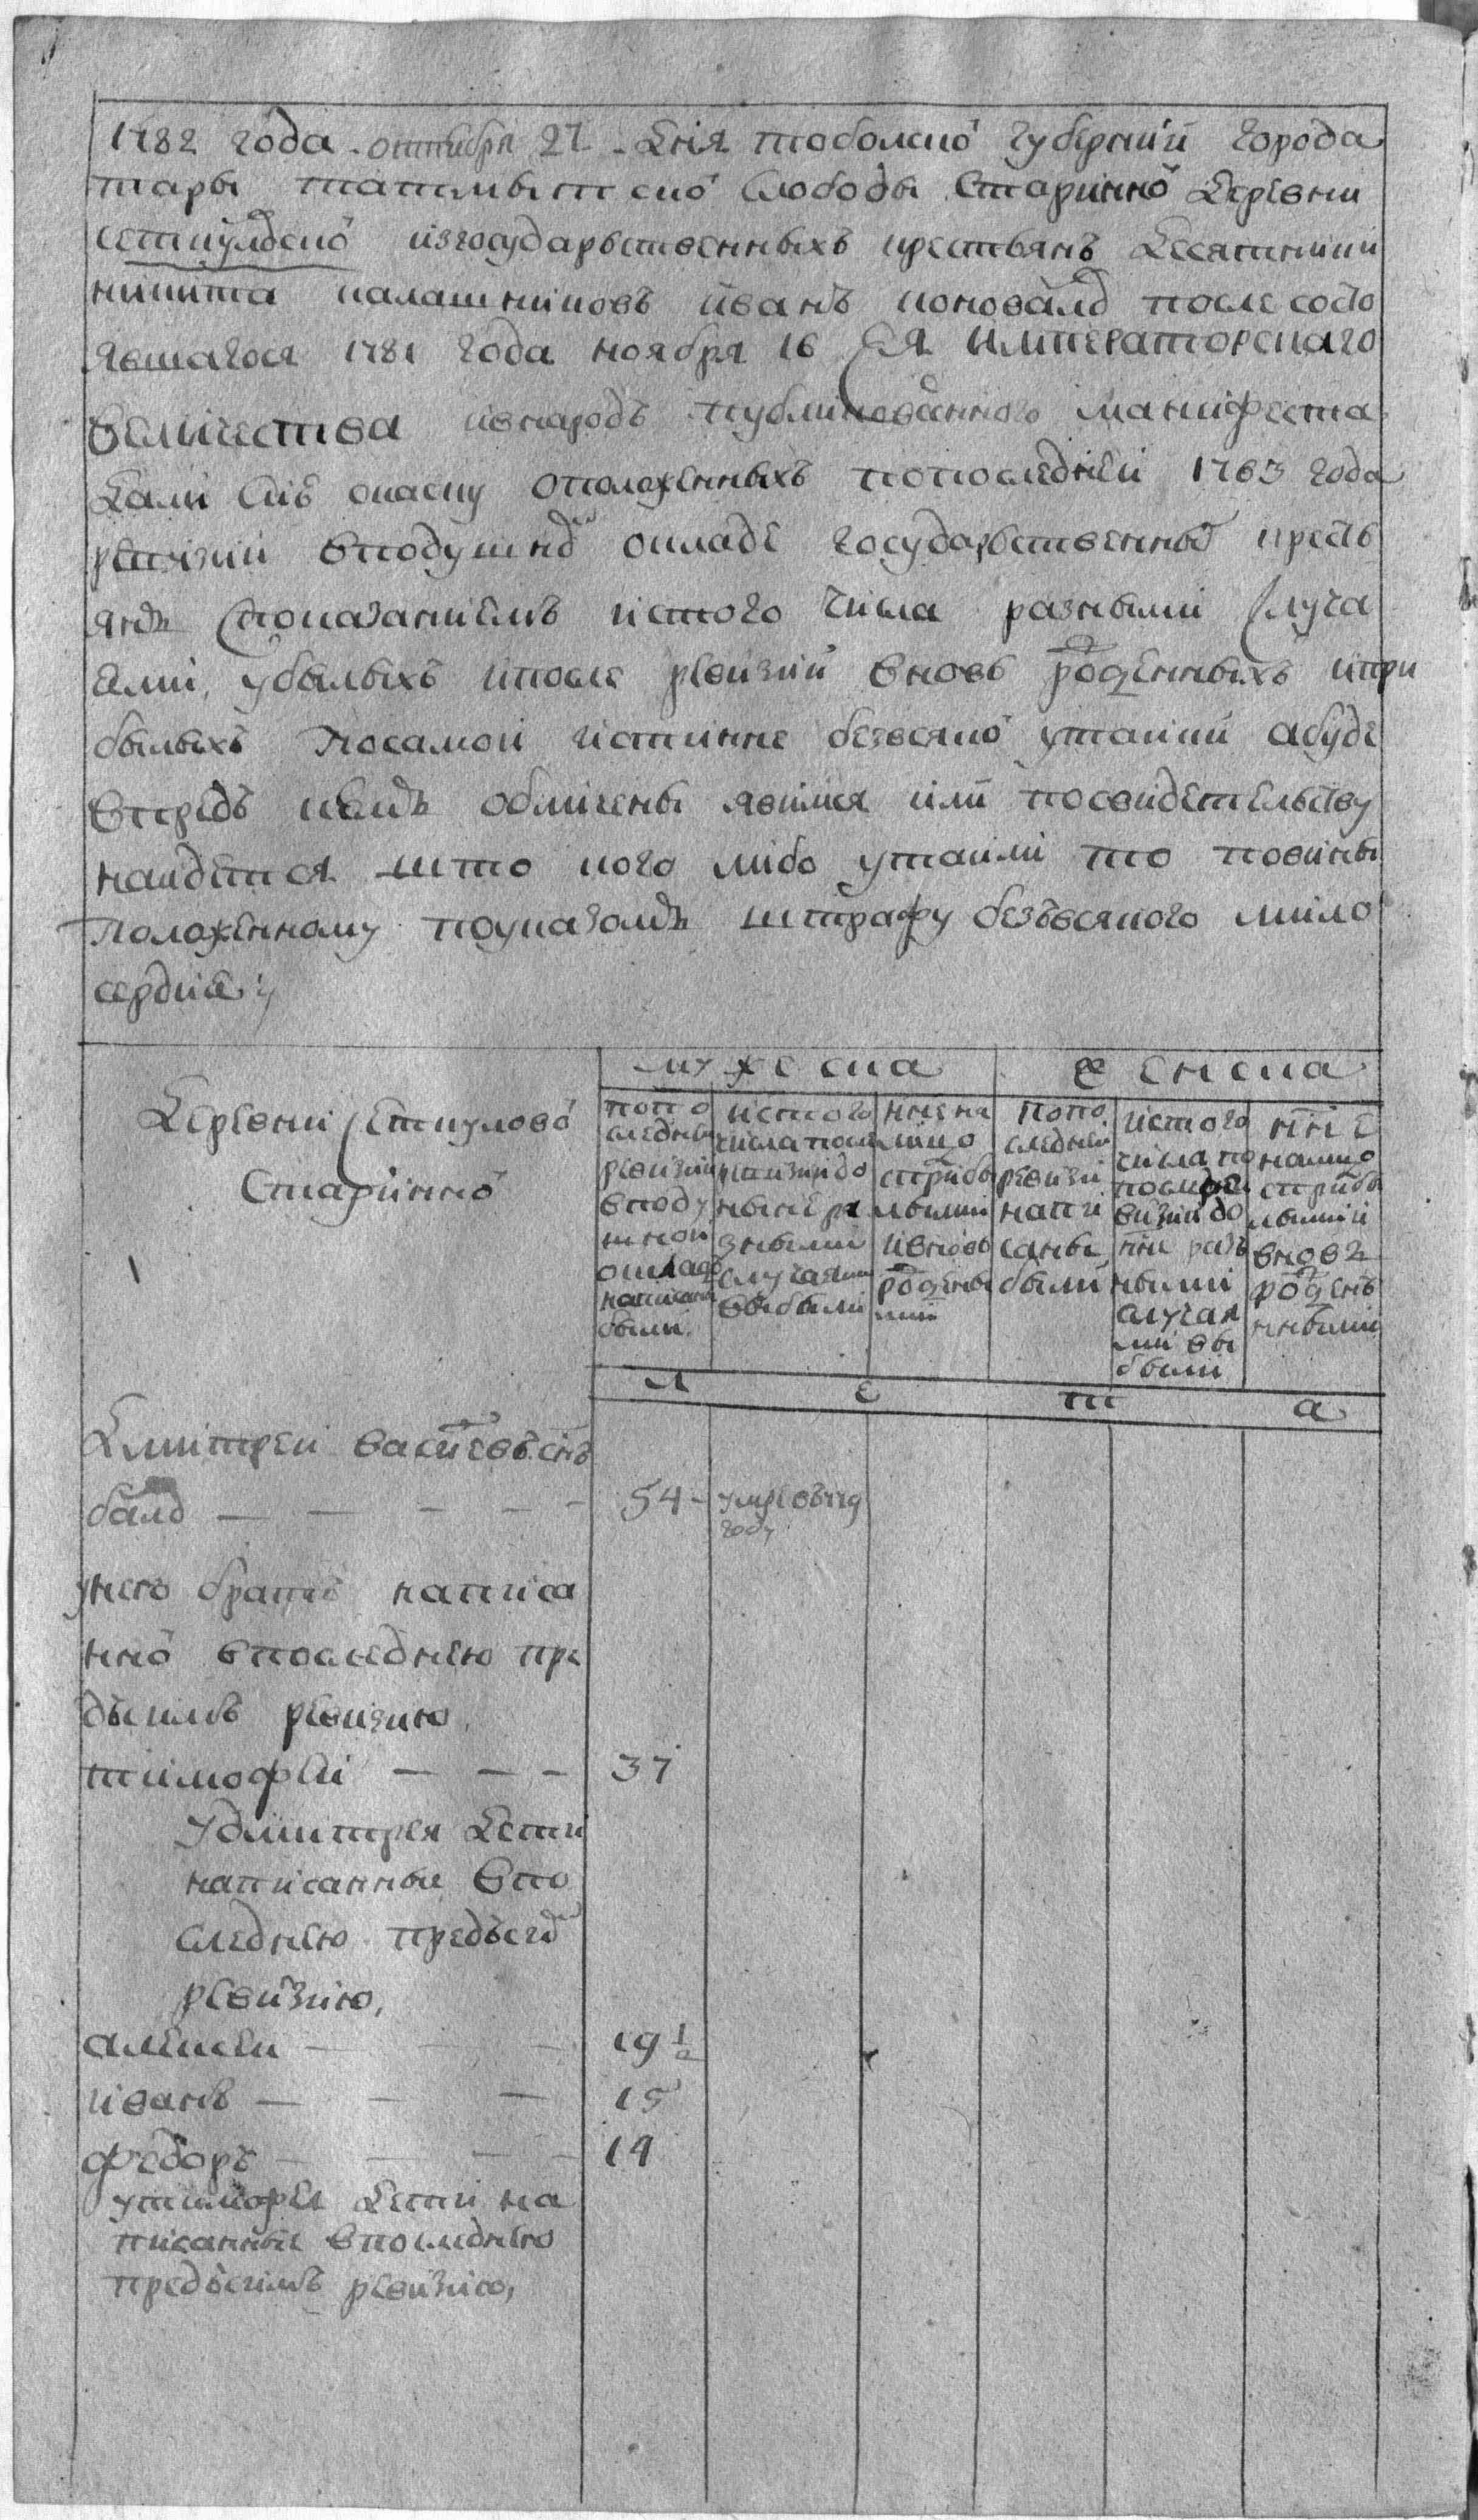 1782 года октября 27 дня тоболскои губернии города
тары татмыцскои слободы старинной деревни
сеткуловской изгосударьственныхъ крестьянъ десятники
никита калашниковъ иванъ коновалов после состо
явшагося 1781 года ноября 16 Ея императорскаго
величества ивнародъ публикованного манифеста
дали сию скаску оположенныхъ попоследней 1763 года
ревизии вподушной окладе государьственных кресть
янех споказаниемъ истого числа разными случа
ями убылыхъ ипосле ревизии вновь рожденныхъ ипри
былыхъ посамои истинне безвсякой утаики абуде
впредь кемъ обличены явимся или посвидетельству
наидется што кого либо утаили то повины
положенному поуказомъ штрафу безъвсякого мило
сердия
мужеска женска
деревни сеткуловой
старинной
попо
следней
ревизии
вподу
шной
окладе
написаны
были
истого
числа после
ревизии до
ныне ра
зными
случаями
выбыли
ныне на
лицо
сприбы
лыми
ивновь
рожденны
ми
попо
следней
ревизии
напи
саны
были
истого
числа по
последней ре
визии до
нне разъ
ными
случая
ми вы
были
нне
налицо
сприбы
лыми
вновь
рожденъ
нными
л е т а
дмитреи васильевъ снъ
балд — — — — 54 - умре въ 779
году
унего братъ написа
нной впоследнею пре
дъсимъ ревизию
тимофеи — — — 37
удмитрея дети
написанные впо
следнею предъсей
ревизию,
алексеи — — — 19 1/2
иванъ — — — 15
федоръ — — — 14
утимофея дети на
писанные впоследнею
предъсимъ ревизию,